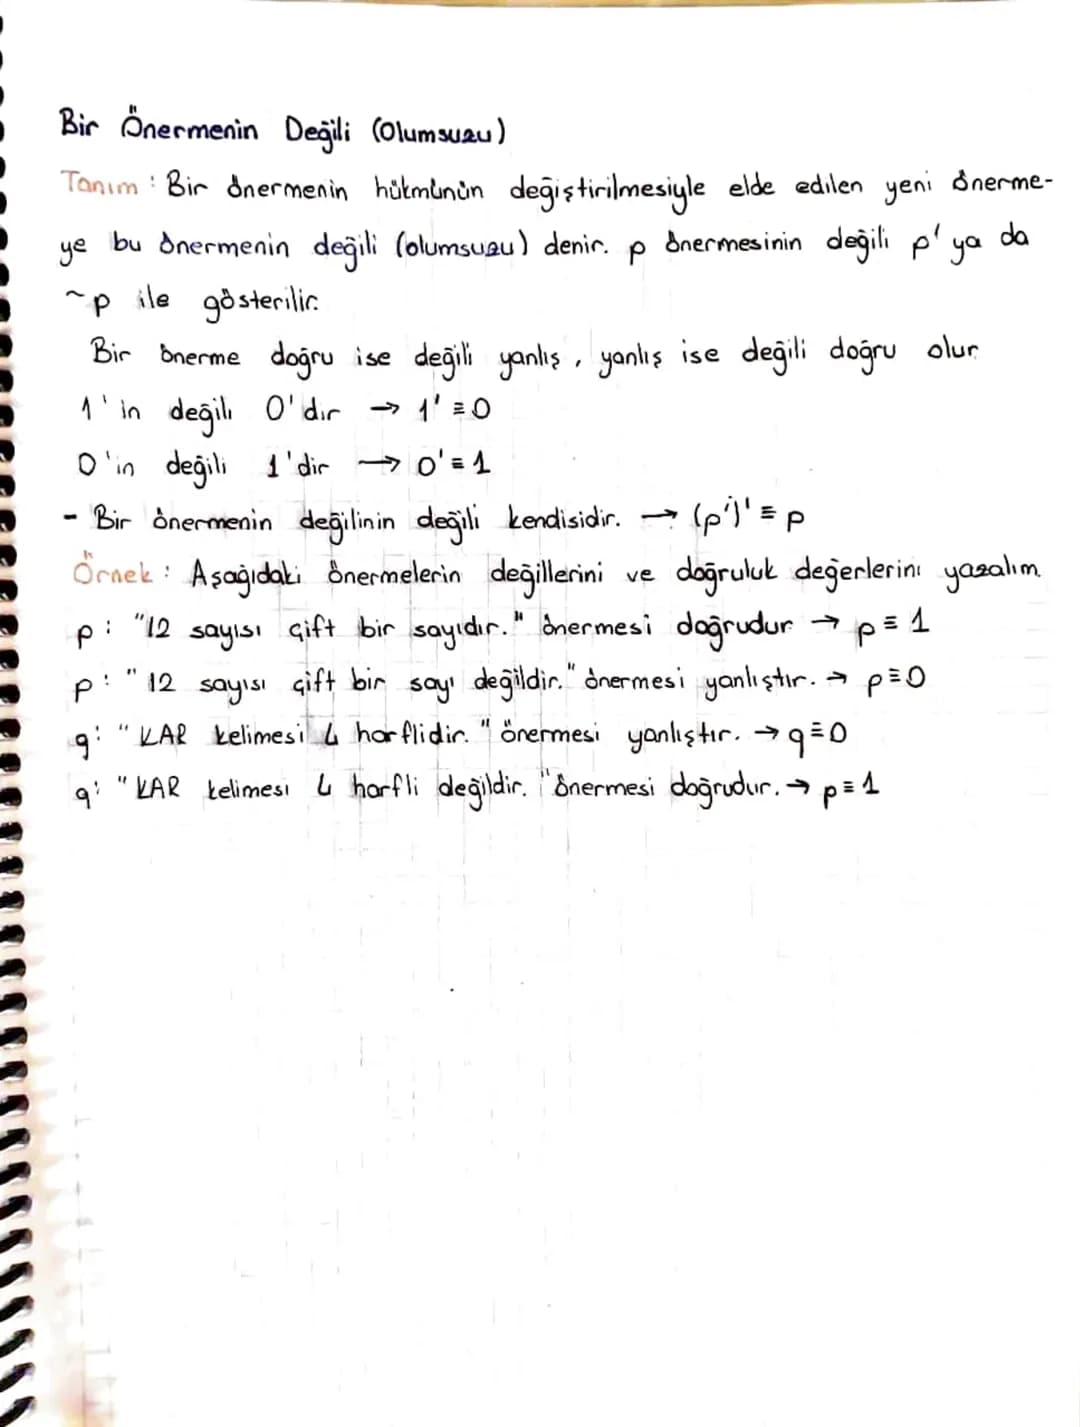 Bir Önermenin Değili (Olumsuzu)
Tanım : Bir önermenin hükmünün değiştirilmesiyle elde edilen yeni önerme-
ye bu önermenin değili (olumsuzu) denir. p önermesinin değili p' ya da
~p ile gösterilir.
Bir önerme doğru ise değili yanlış, yanlış ise değili doğru olur.
1'in değili 0'dır → 1' ≡ 0
0'in değili 1'dir → 0' ≡ 1
- Bir önermenin değilinin değili kendisidir. → (p')' ≡ p
Örnek : Aşağıdaki önermelerin değillerini ve doğruluk değerlerini yazalım.
p : "12 sayısı çift bir sayıdır." önermesi doğrudur → p ≡ 1
p : "12 sayısı çift bir sayı değildir." önermesi yanlıştır. → p ≡ 0
q : "KAR kelimesi 4 harflidir." önermesi yanlıştır. → q ≡ 0
q : "KAR kelimesi 4 harfli değildir." önermesi doğrudur. → p ≡ 1